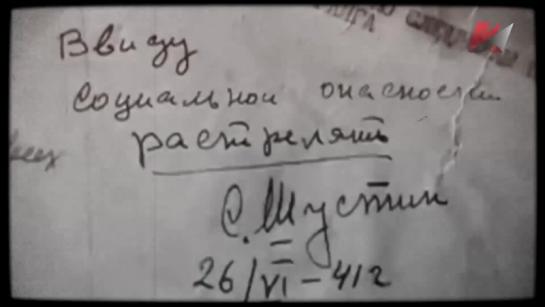 Ввиду
социальной опасности
растрелять
С. Шустин
26/VI-41г